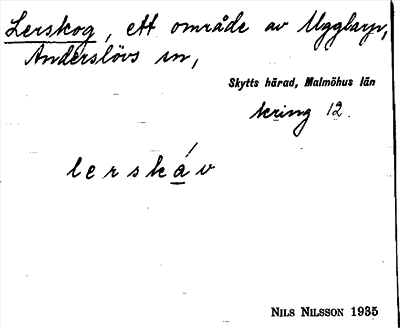 Lerskog, ett område av Ugglarp,
Anderslövs sn,
Skytts härad, Malmöhus län
kring 12.
lerskáv
NILS NILSSON 1935